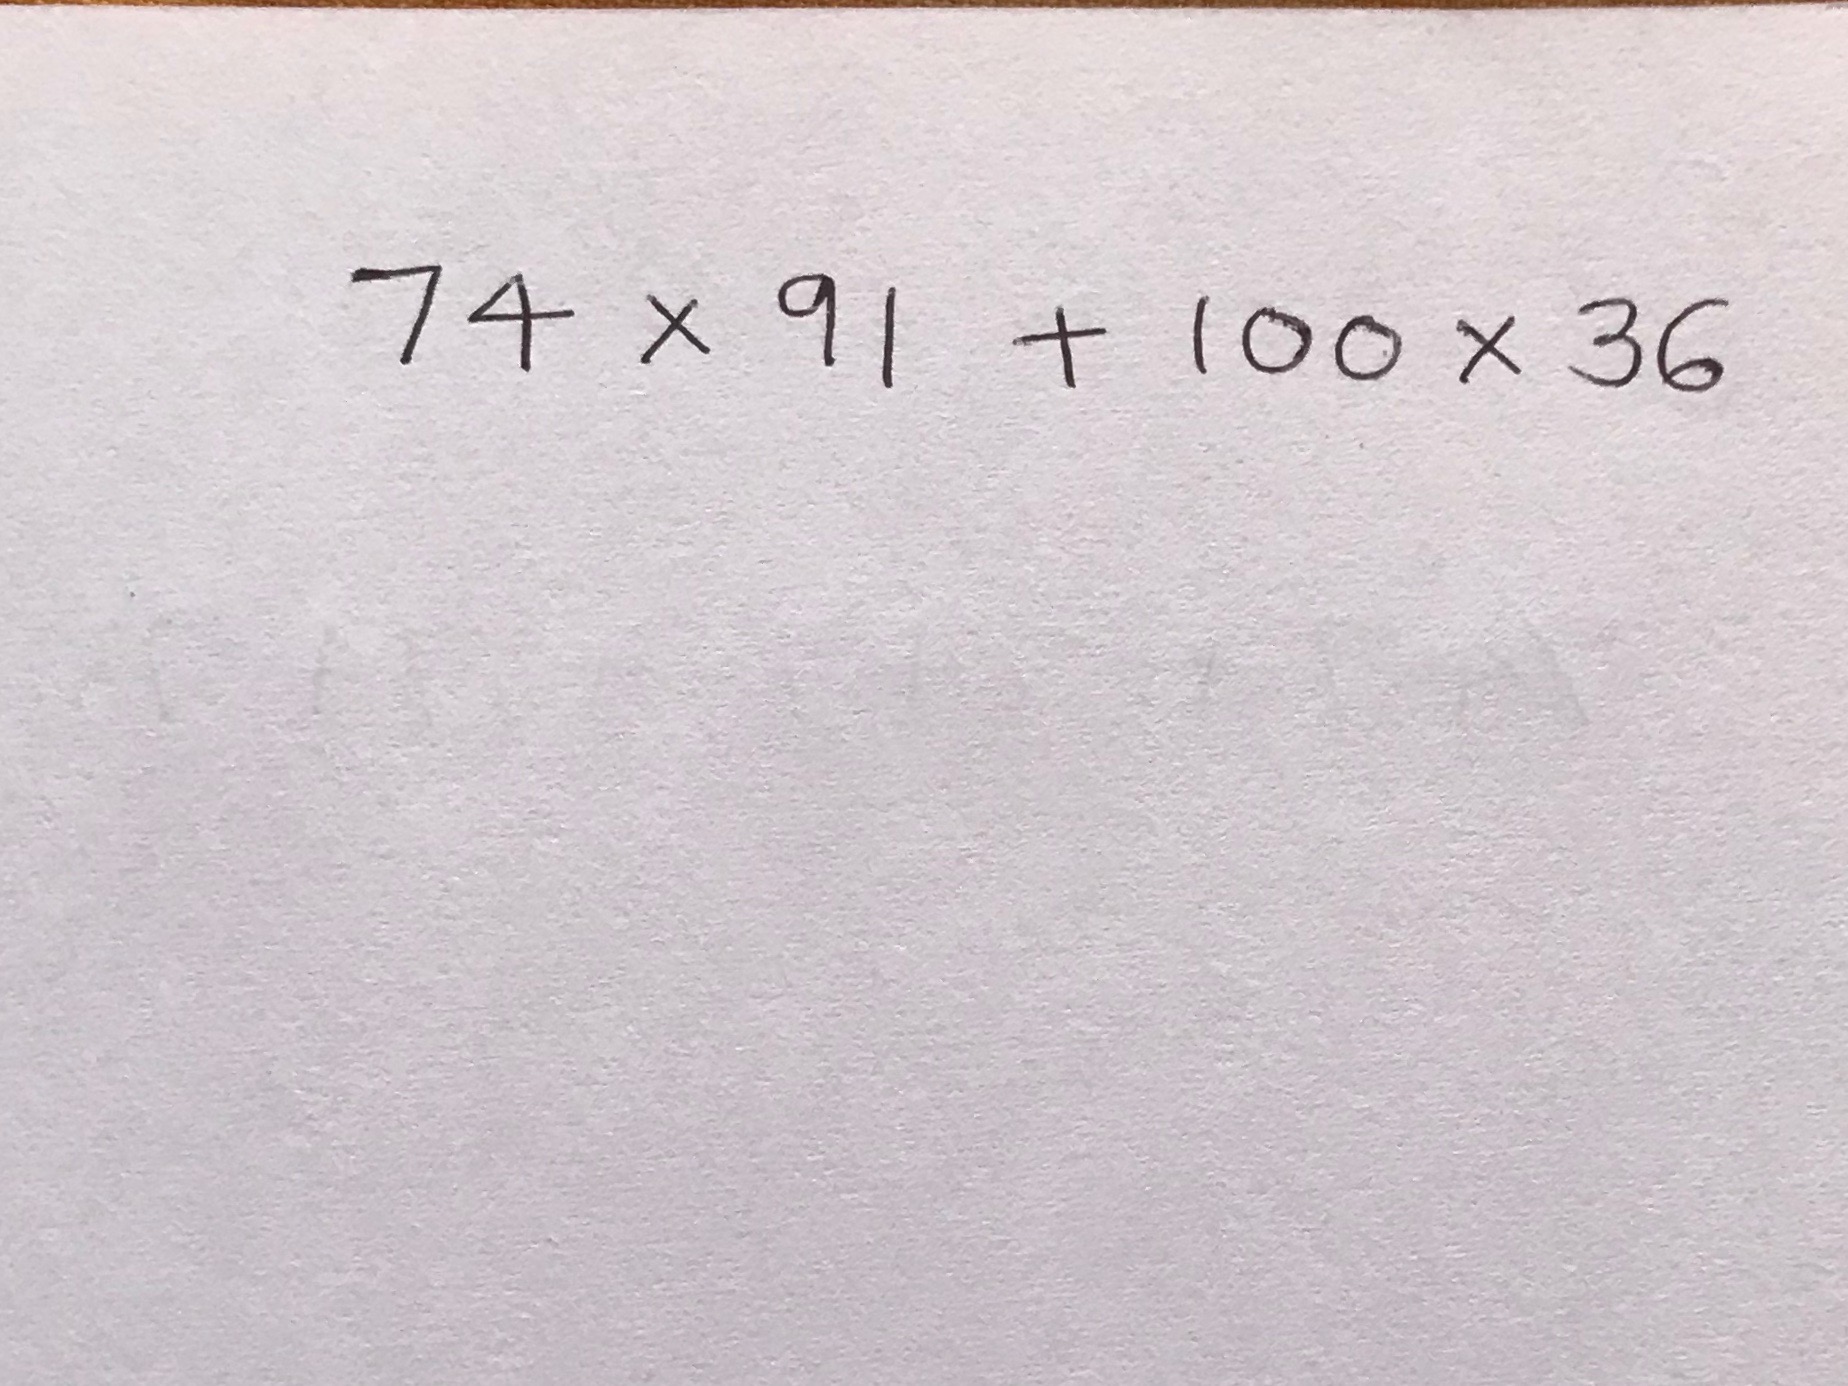 74 × 91 + 100 × 36